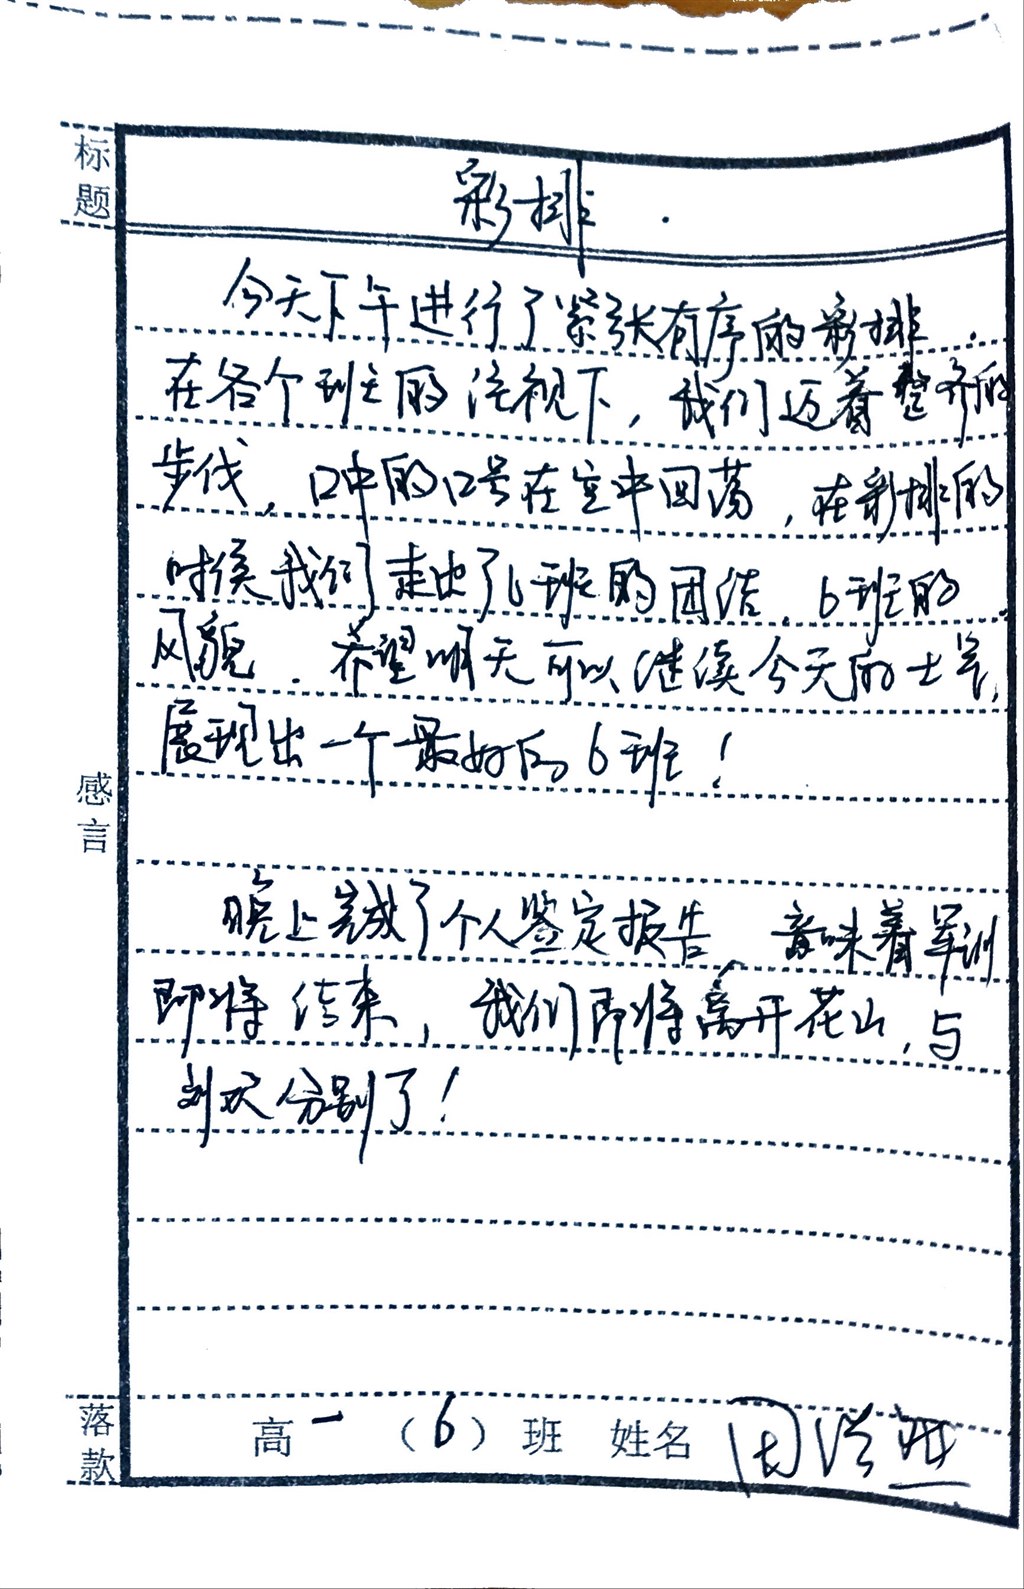 标题
彩排.
今天下午进行了紧张有序的彩排.
在各个班主的注视下，我们迈着整齐的
步伐，口中的口号在空中回荡，在彩排的
时候我们走出了6班的团结、6班的
风貌.希望明天可以继续今天的士气,
展现出一个最好的6班！
感言
晚上完成了个人鉴定报告、意味着军训
即将结束，我们即将离开花山，与
刘 分别了！
落款
高一（6）班 姓名